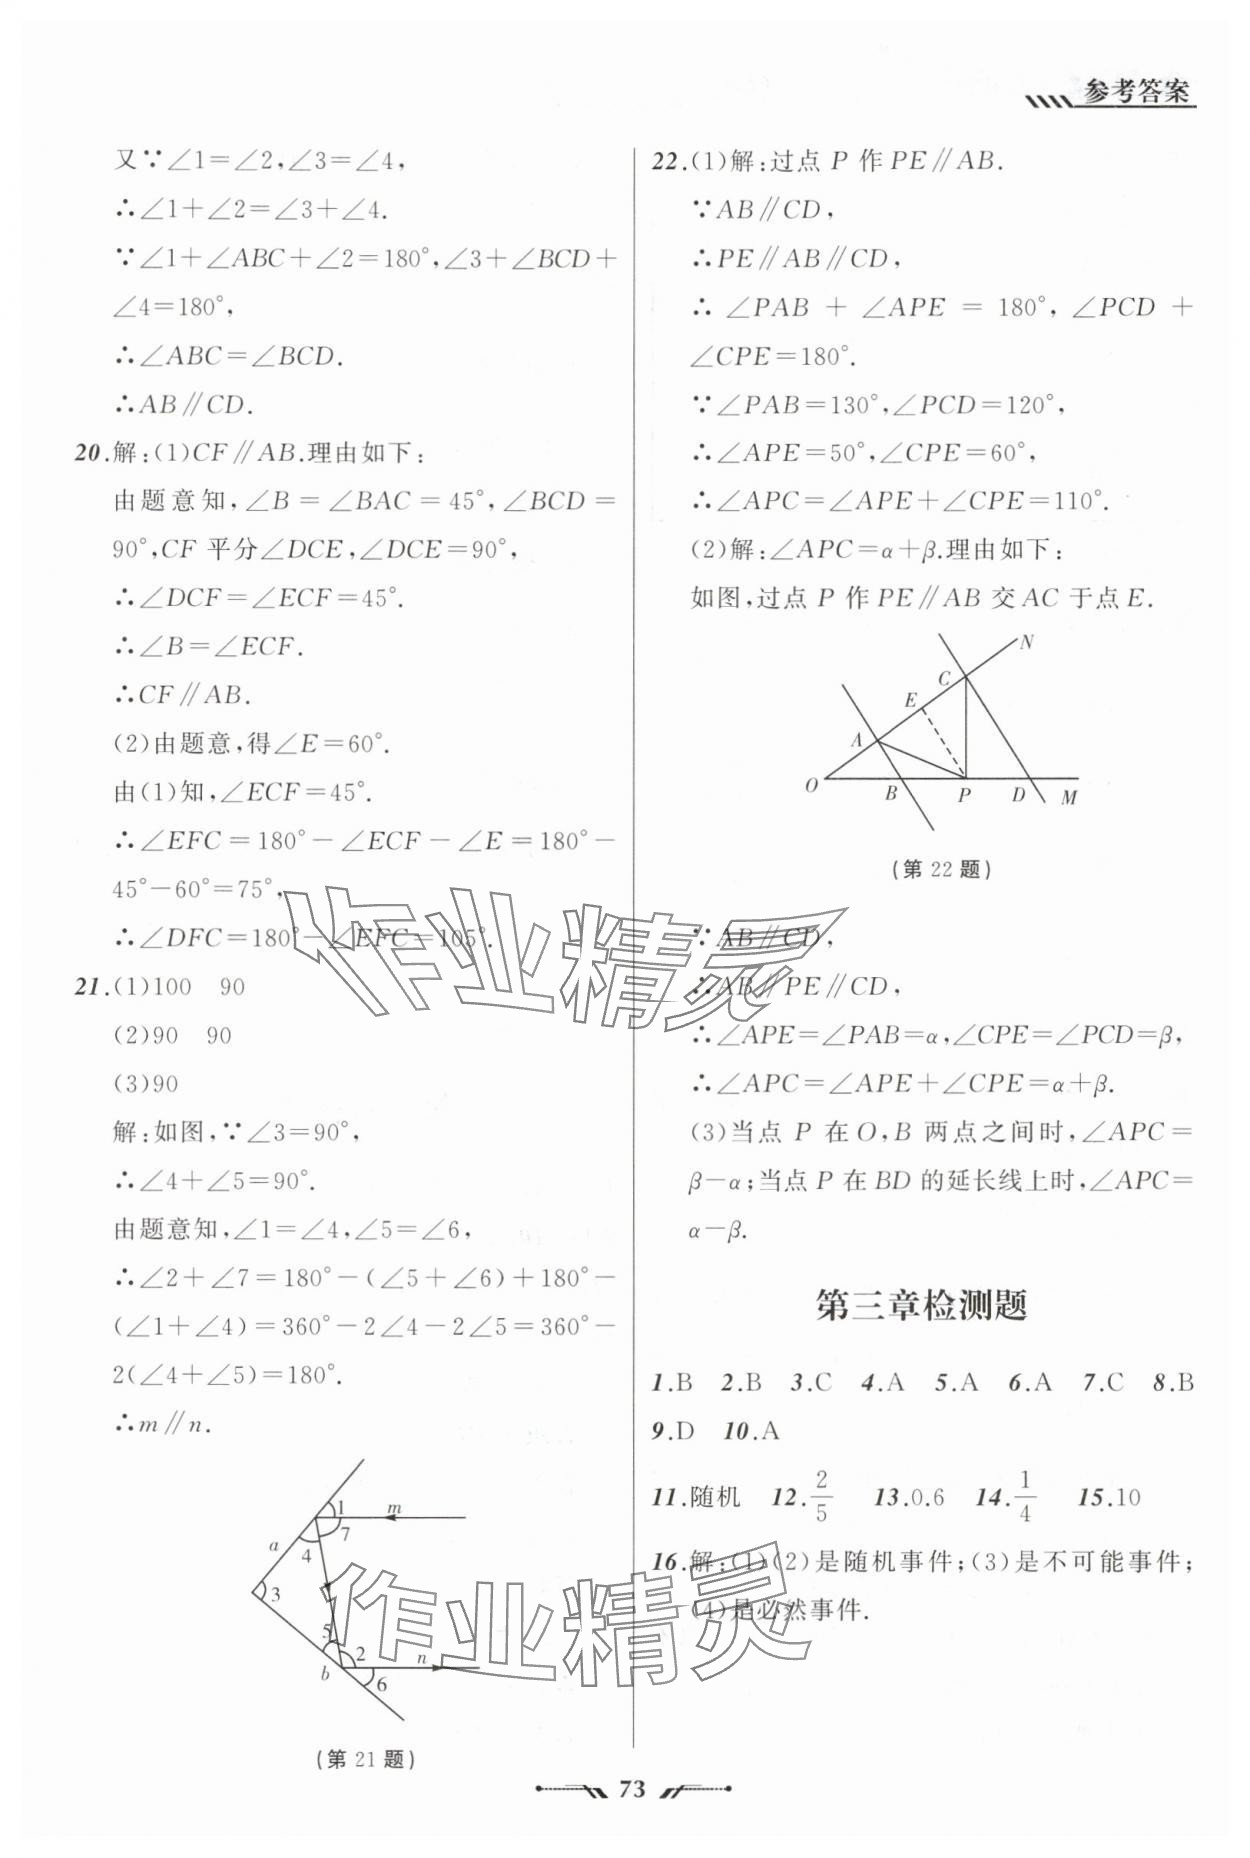 参考答案
又∵∠1=∠2,∠3=∠4,
∴∠1+∠2=∠3+∠4.
∵∠1+∠ABC+∠2=180°,∠3+∠BCD+
∠4=180°,
∴∠ABC=∠BCD.
∴AB∥CD.
20.解:(1)CF∥AB.理由如下:
由题意知,∠B=∠BAC=45°,∠BCD=
90°,CF 平分∠DCE,∠DCE=90°,
∴∠DCF=∠ECF=45°.
∴∠B=∠ECF.
∴CF∥AB.
(2)由题意,得∠E=60°.
由(1)知,∠ECF=45°.
∴∠EFC=180°-∠ECF-∠E=180°-
45°-60°=75°,
∴∠DFC=180°-∠EFC=105°.
21.(1)100 90
(2)90 90
(3)90
解:如图,∵∠3=90°,
∴∠4+∠5=90°.
由题意知,∠1=∠4,∠5=∠6,
∴∠2+∠7=180°-(∠5+∠6)+180°-
(∠1+∠4)=360°-2∠4-2∠5=360°-
2(∠4+∠5)=180°.
∴m∥n.
1
m
7
a
4
3
5
2
n
b
6
(第 21 题)
22.(1)解:过点 P 作 PE∥AB.
∵AB∥CD,
∴PE∥AB∥CD,
∴∠PAB+∠APE=180°,∠PCD+
∠CPE=180°.
∵∠PAB=130°,∠PCD=120°,
∴∠APE=50°,∠CPE=60°,
∴∠APC=∠APE+∠CPE=110°.
(2)解:∠APC=α+β.理由如下:
如图,过点 P 作 PE∥AB 交 AC 于点 E.
N
C
E
A
O
B
P
D
M
(第 22 题)
∵AB∥CD,
∴AB∥PE∥CD,
∴∠APE=∠PAB=α,∠CPE=∠PCD=β,
∴∠APC=∠APE+∠CPE=α+β.
(3)当点 P 在 O,B 两点之间时,∠APC=
β-α;当点 P 在 BD 的延长线上时,∠APC=
α-β.
第三章检测题
1.B 2.B 3.C 4.A 5.A 6.A 7.C 8.B
9.D 10.A
11.随机 12.2/5 13.0.6 14.1/4 15.10
16.解:(1)(2)是随机事件;(3)是不可能事件;
(4)是必然事件.
作业精灵
作业精灵
73